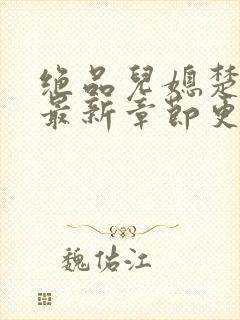 绝品儿媳楚
最新章节更
魏佑江